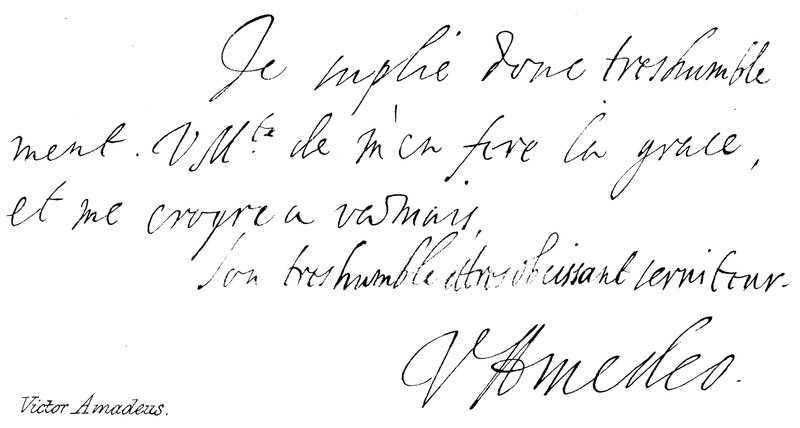 Je suplie donc treshumble
ment. V Mte. de m'en fere la grace,
et me croyre a
Son treshumble et tresobeissant serviteur
V Amedeo.
Victor Amadeus.